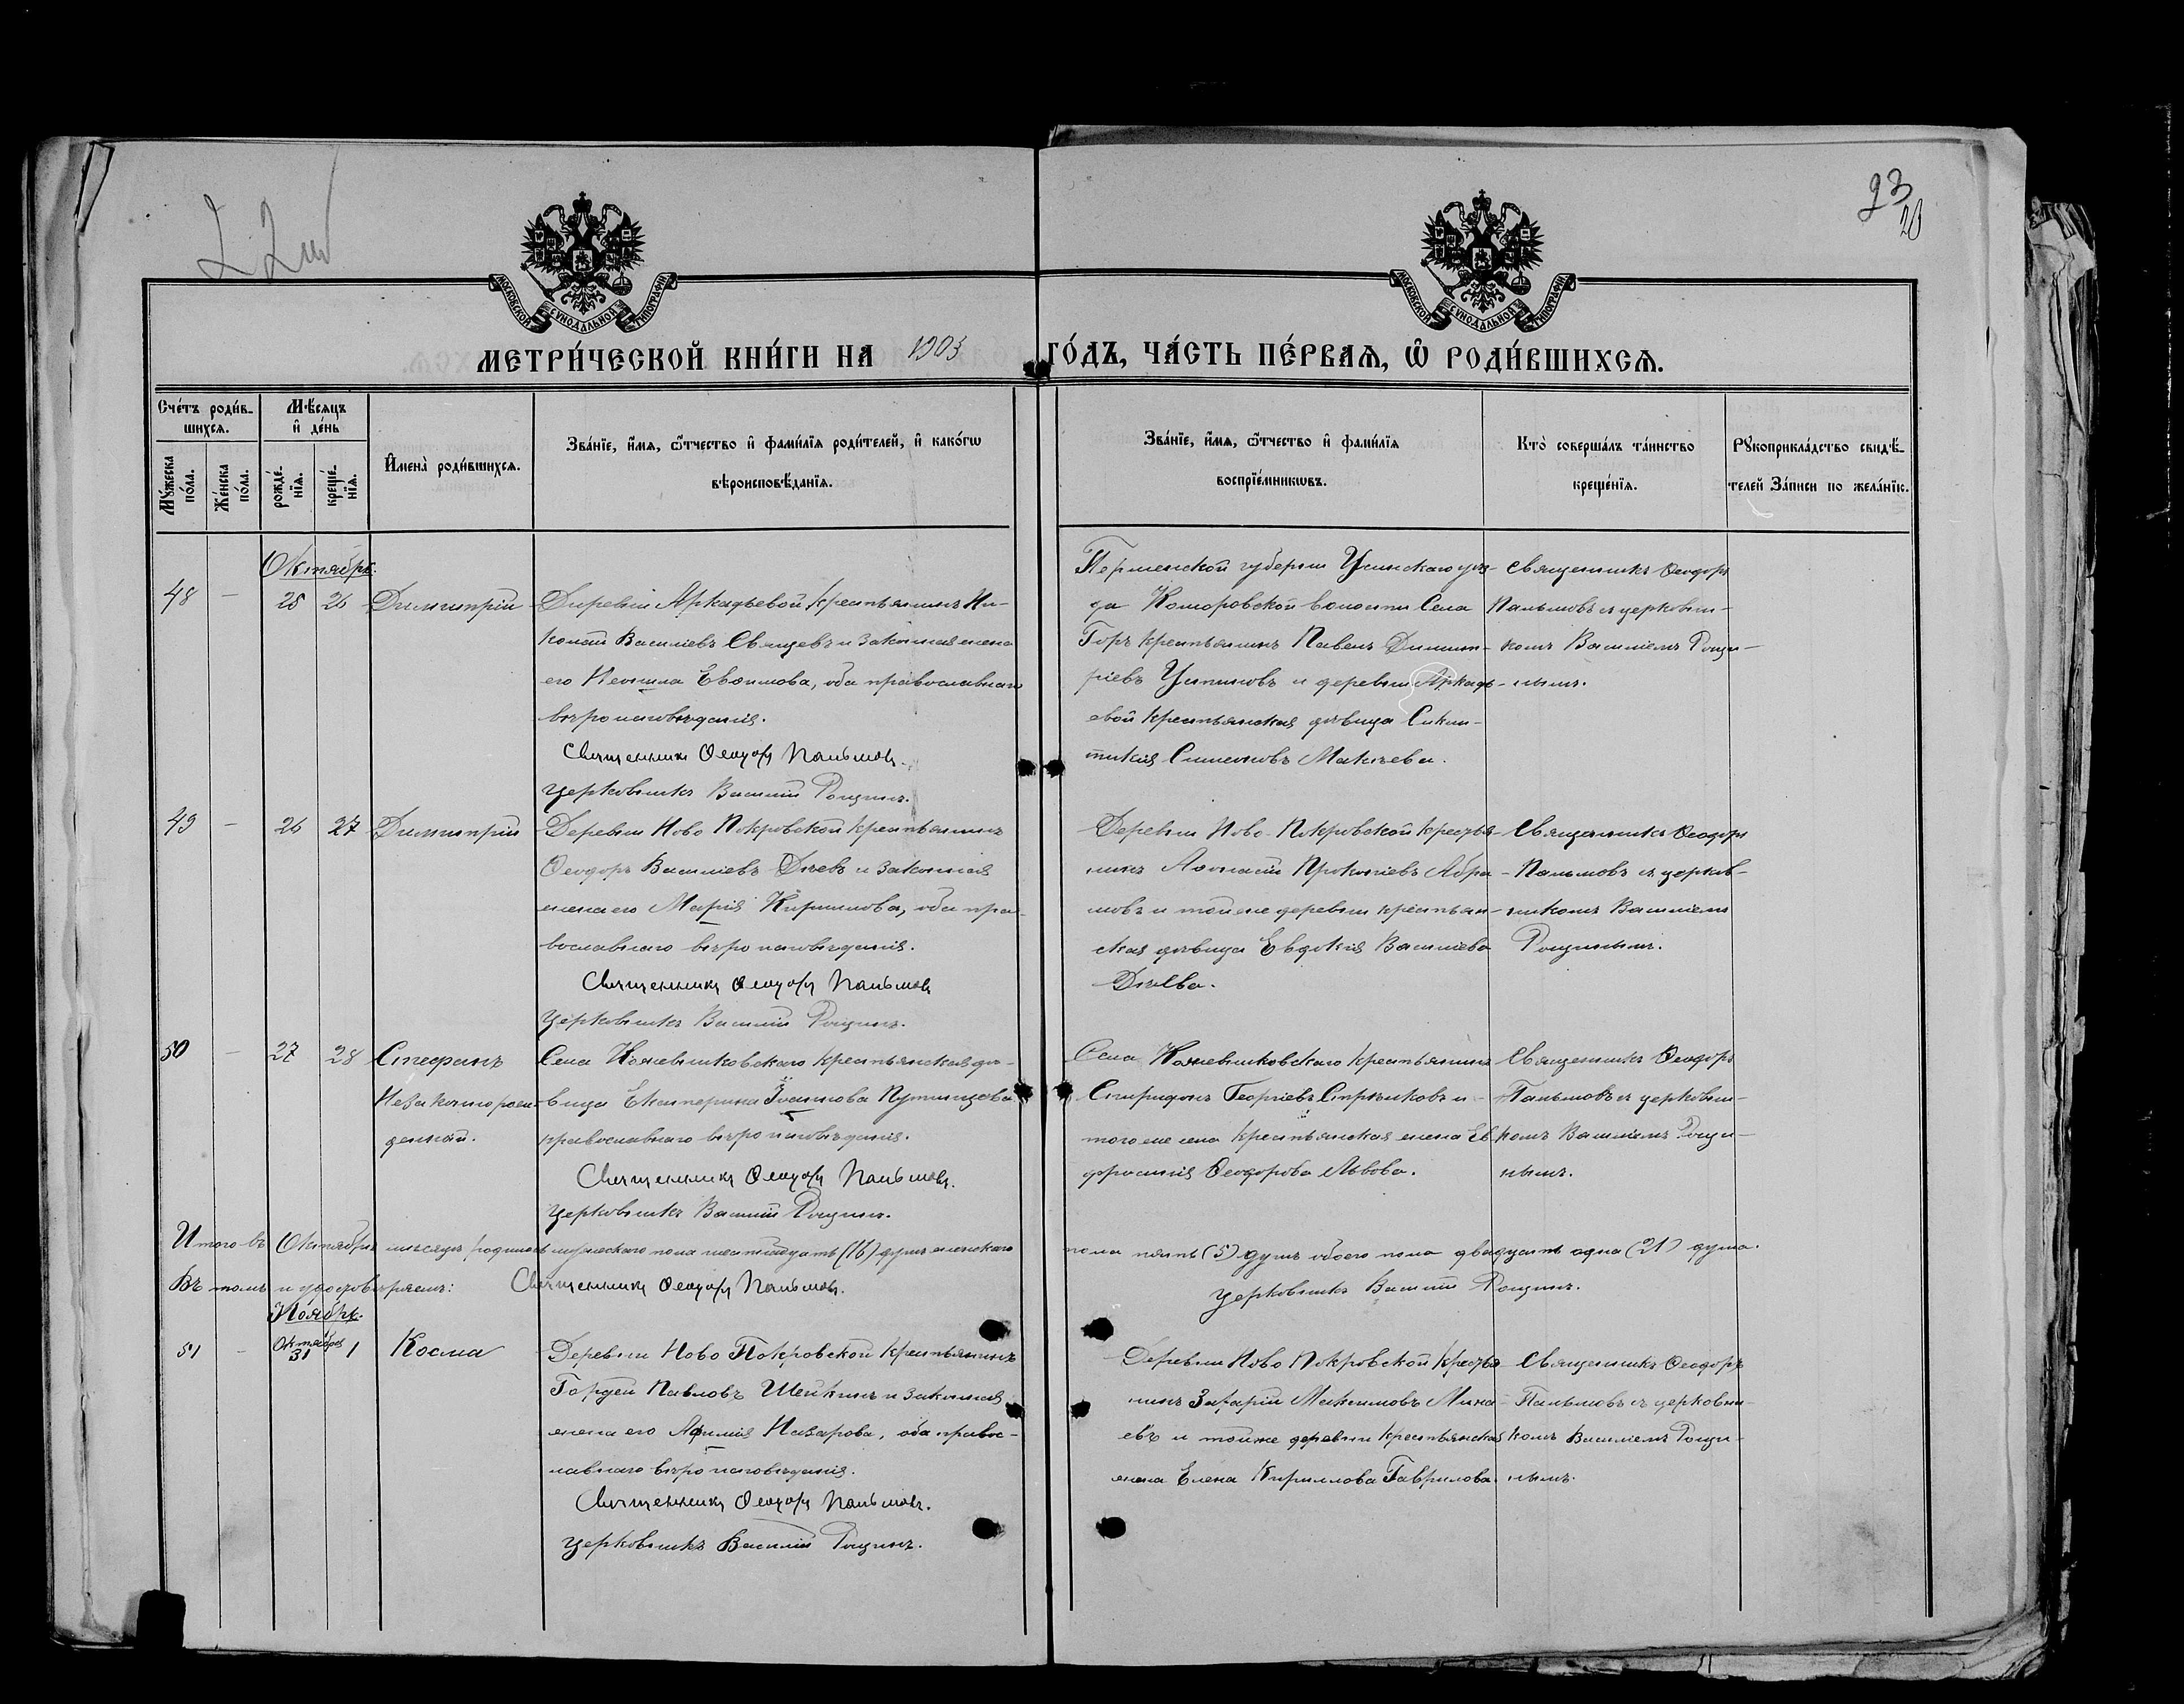 23
20
МОСКОВСКОЙ СѴНОДАЛЬНОЙ ТИПОГРАФІИ
МОСКОВСКОЙ СѴНОДАЛЬНОЙ ТИПОГРАФІИ
МЕТРИ́ЧЕСКОЙ КНИ́ГИ НА 1903 ГО́ДЪ, ЧА́СТЬ ПЕ́РВАѦ, Ѿ РОДИ́ВШИХСѦ.
Сче́тъ роди́в-
шихсѧ.
Мѣ́сѧцъ
и҆ де́нь
Мꙋ́жеска по́ла.
Же́нска по́ла.
рожде́-
нїѧ.
креще́-
нїѧ.
И҆мена̀ роди́вшихсѧ.
Зва́нїе, и҆́мѧ, ѻ҆́тчество и҆ фами́лїѧ роди́телей, и҆ како́гѡ
вѣроисповѣ́данїѧ.
Зва́нїе, и҆́мѧ, ѻ҆́тчество и҆ фами́лїѧ
воспрїе́мникѡвъ.
Кто̀ соверша́лъ та́инство
креще́нїѧ.
Рꙋкоприкла́дство свидѣ́-
телей за́писи по жела́нїю.
Октябрь.
48 - 25 26 Димитрій
Деревни Аркадьевой крестьянинъ Ни-
колай Василіевъ Свящевъ и законная жена
его Неонила Евѳимова, оба православнаго
вѣроисповѣданія.
Священникъ Ѳеодоръ Пальмовъ.
Церковникъ Василій Рощинъ.
Пермской губерніи Усинскаго уѣз-
да Коморовской волости Села
Горъ крестьянинъ Павелъ Димит-
ріевъ Устиновъ и деревни Аркадь-
евой крестьянская дѣвица Синкли-
тикія Симеонова Макѣева.
Священникъ Ѳеодоръ
Пальмовъ съ церковни-
комъ Василіемъ Рощи-
нымъ.
49 - 26 27 Димитрій
Деревни Ново Покровской крестьянинъ
Ѳеодоръ Василіевъ Дѣевъ и законная
жена его Марія Кириллова, оба пра-
вославнаго вѣроисповѣданія.
Священникъ Ѳеодоръ Пальмовъ
Церковникъ Василій Рощинъ.
Деревни Ново-Покровской крестья-
нинъ Аѳонасій Прокопіевъ Абра-
мовъ и той же деревни крестьян-
ская дѣвица Евдокія Василіева
Дѣева.
Священникъ Ѳеодоръ
Пальмовъ съ церков-
никомъ Василіемъ
Рощинымъ.
50 - 27 28 Стефанъ
Незаконнорож-
денный.
Села Кожевниковскаго крестьянская дѣ-
вица Екатерина Іоаннова Путинцева
православнаго вѣроисповѣданія.
Священникъ Ѳеодоръ Пальмовъ.
Церковникъ Василій Рощинъ.
Села Кожевниковскаго крестьянинъ
Спиридонъ Георгіевъ Стрѣлковъ и
того же села крестьянская жена Ев
фросинія Ѳеодорова Львова.
Священникъ Ѳеодоръ
Пальмовъ съ церковни-
комъ Василіемъ Рощи-
нымъ.
Итого въ Октябрѣ мѣсяцѣ родилось мужескаго пола шестнадцать (16) душъ женскаго
пола пять (5) душъ обоего пола двадцать одна (21) душа.
Въ томъ и удостовѣряемъ: Священникъ Ѳеодоръ Пальмовъ.
Церковникъ Василій Рощинъ.
Ноябрь.
51 - Октября 31 1 Косма
Деревни Ново Покровской крестьянинъ
Гордей Павловъ Шейкинъ и законная
жена его Афимія Назарова, оба правос-
лавнаго вѣроисповѣданія.
Священникъ Ѳеодоръ Пальмовъ.
Церковникъ Василій Рощинъ.
Деревни Ново Покровской крестья-
нинъ Захарій Максимовъ Мина-
евъ и той же деревни крестьянская
жена Елена Кириллова Гаврилова.
Священникъ Ѳеодоръ
Пальмовъ съ церковни-
комъ Василіемъ Рощи-
нымъ.